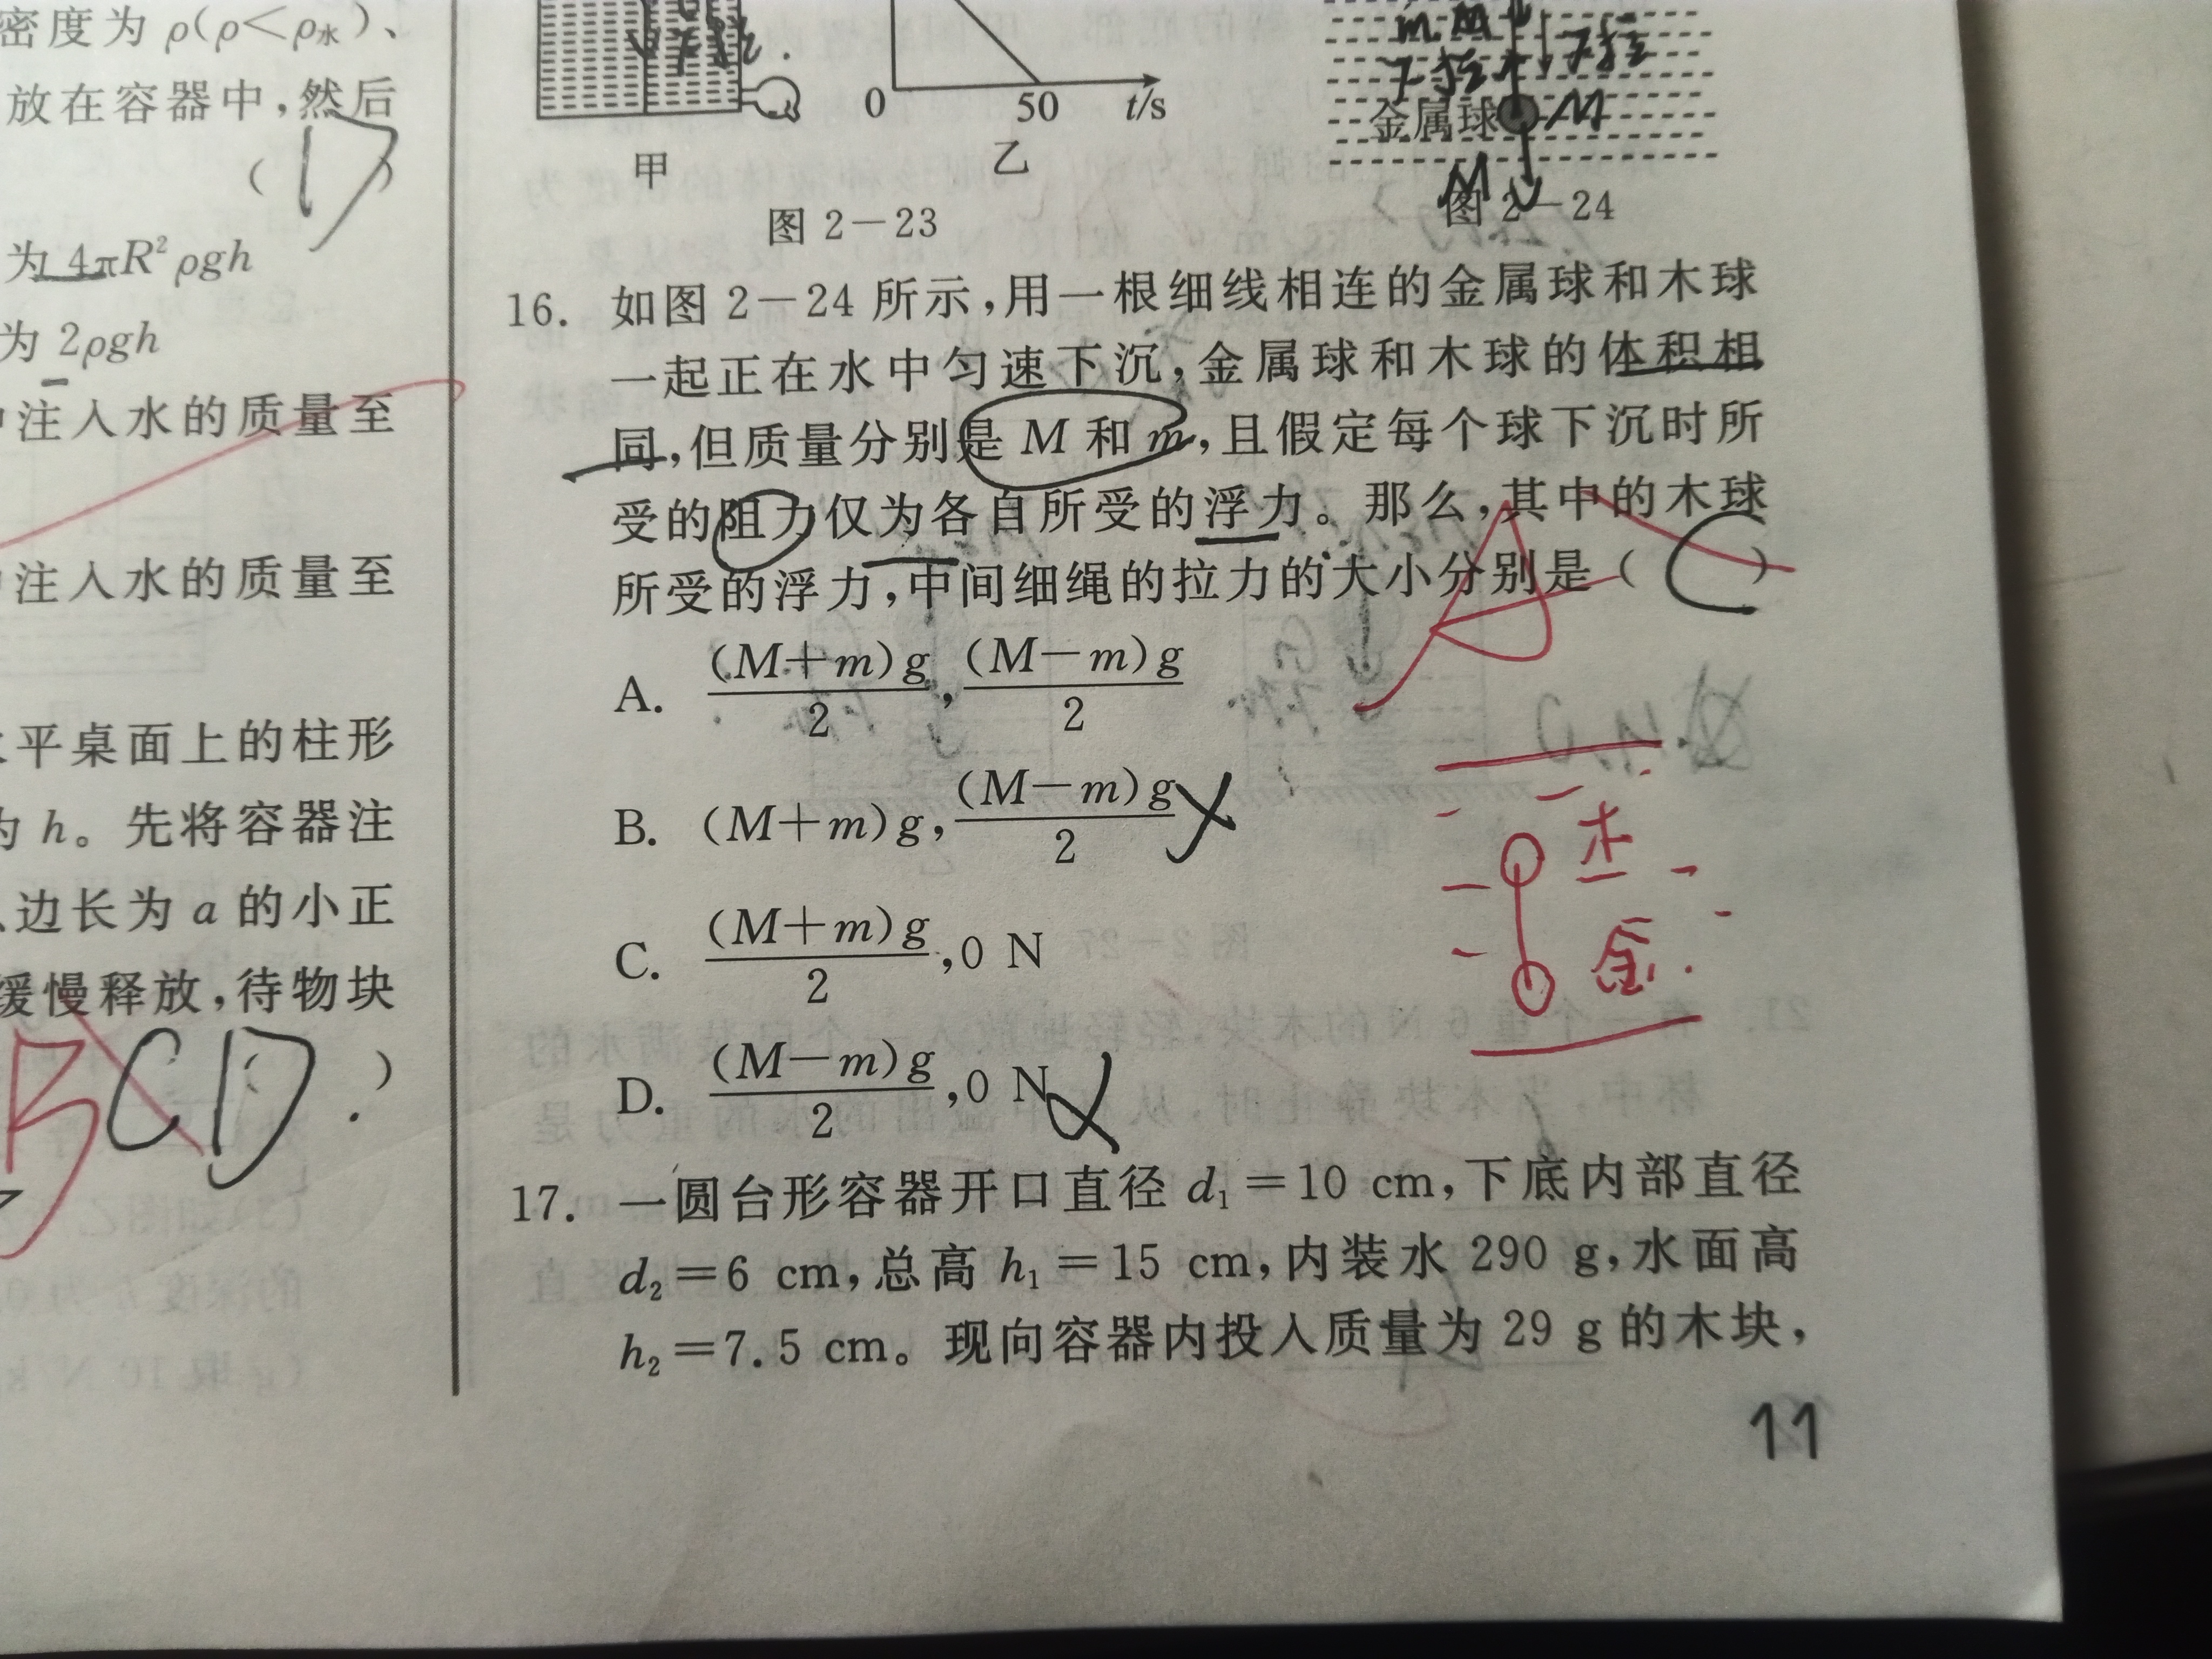 密度为 ρ(ρ<ρ水)、
放在容器中,然后
( D )
为 4πR²ρgh
为 2ρgh
注入水的质量至
注入水的质量至
平桌面上的柱形
h。先将容器注
边长为 a 的小正
缓慢释放,待物块
B CD ( )
0 50 t/s
甲 乙
图 2-23
m
金属球 M
M
图 2-24
16. 如图 2-24 所示,用一根细线相连的金属球和木球
一起正在水中匀速下沉,金属球和木球的体积相
同,但质量分别是 M 和 m,且假定每个球下沉时所
受的阻力仅为各自所受的浮力。那么,其中的木球
所受的浮力,中间细绳的拉力的大小分别是( C )
A
A. (M+m)g/2,(M-m)g/2
B. (M+m)g,(M-m)g/2
C. (M+m)g/2,0 N
D. (M-m)g/2,0 N
木
金
17. 一圆台形容器开口直径 d₁=10 cm,下底内部直径
d₂=6 cm,总高 h₁=15 cm,内装水 290 g,水面高
h₂=7.5 cm。现向容器内投入质量为 29 g 的木块,
11